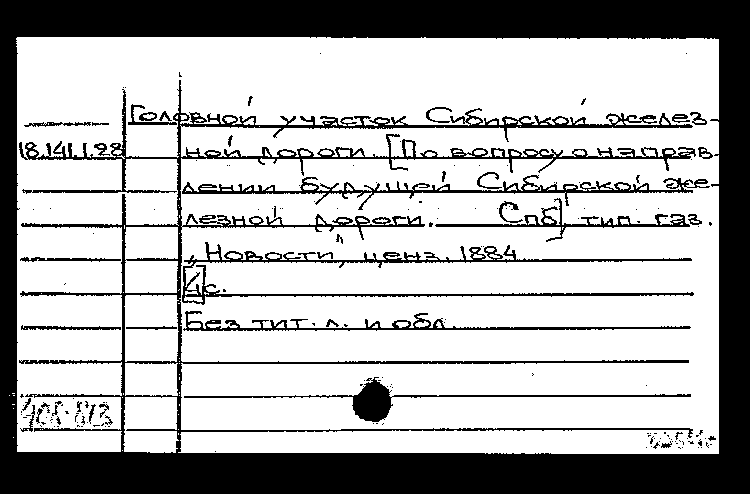 Головной участок Сибирской желез-
18.141.1.28 ной дороги. [По вопросу о направ-
лении будущей Сибирской же-
лезной дороги. Спб], тип. газ.
„Новости", ценз. 1884
[4]с.
Без тит. л. и обл.